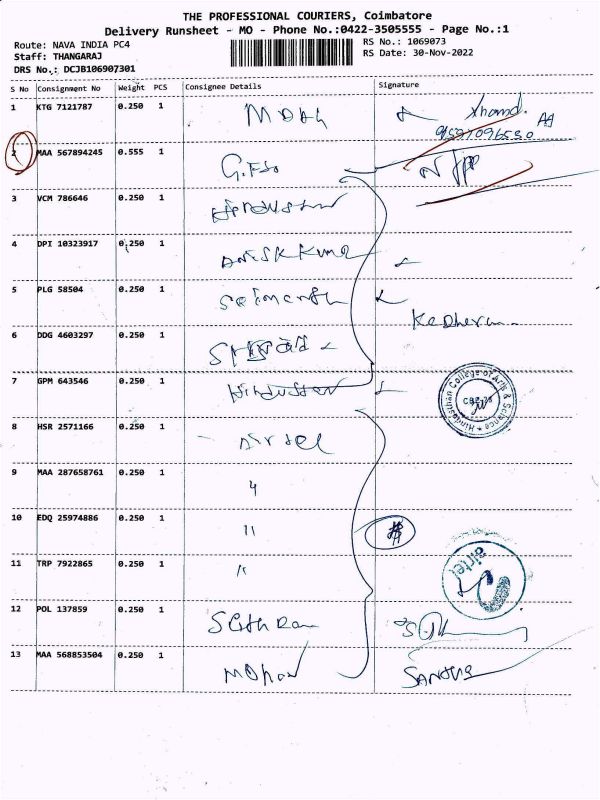 THE PROFESSIONAL COURIERS, Coimbatore
Delivery Runsheet - MO - Phone No.:0422-3505555 - Page No.:1
Route: NAVA INDIA PC4
RS No.: 1069073
Staff: THANGARAJ
RS Date: 30-Nov-2022
DRS No.: DCJB106907301
S No Consignment No Weight PCS Consignee Details Signature
1 KTG 7121787 0.250 1
2 MAA 567894245 0.555 1
3 VCM 786646 0.250 1 Hindustan
4 DPI 10323917 0.250 1
5 PLG 58504 0.250 1
6 DDG 4603297 0.250 1
7 GPM 643546 0.250 1 Hindustan
Hindusthan College of Arts & Science
8 HSR 2571166 0.250 1 Airtel
9 MAA 287658761 0.250 1 "
10 EDQ 25974886 0.250 1 "
11 TRP 7922865 0.250 1 "
airtel
12 POL 137859 0.250 1
13 MAA 568853504 0.250 1 Mohan